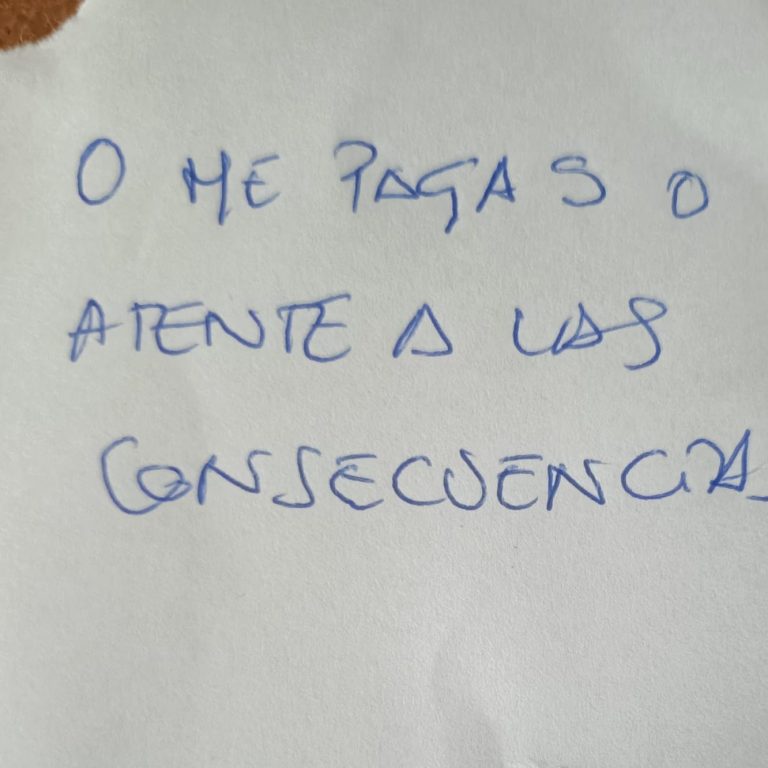 O ME PAGAS O
ATENTE A LAS
CONSECUENCIAS